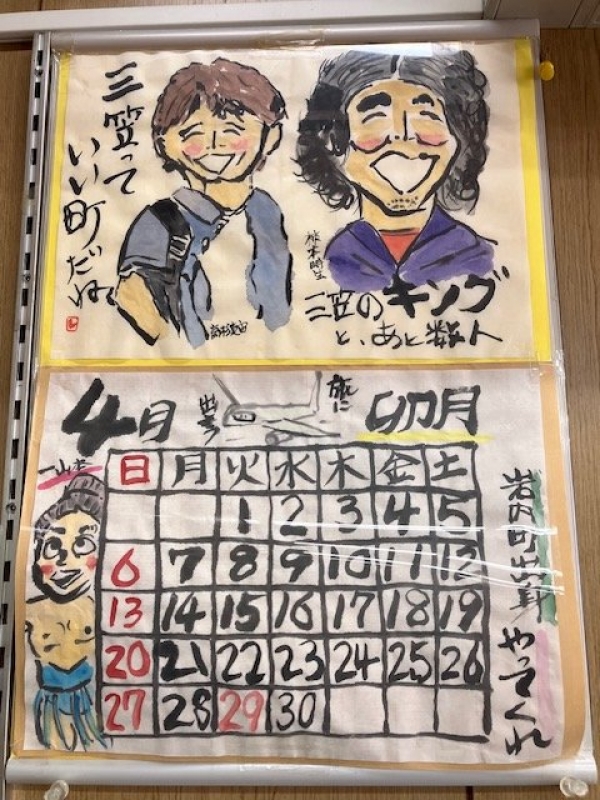 三笠って
いい町だね
三笠のキング
と、あと数人
4月
旅に
出よう
卯月
一山本
日 月 火 水 木 金 土
1 2 3 4 5
6 7 8 9 10 11 12
13 14 15 16 17 18 19
20 21 22 23 24 25 26
27 28 29 30
岩内町出身
やってくれ